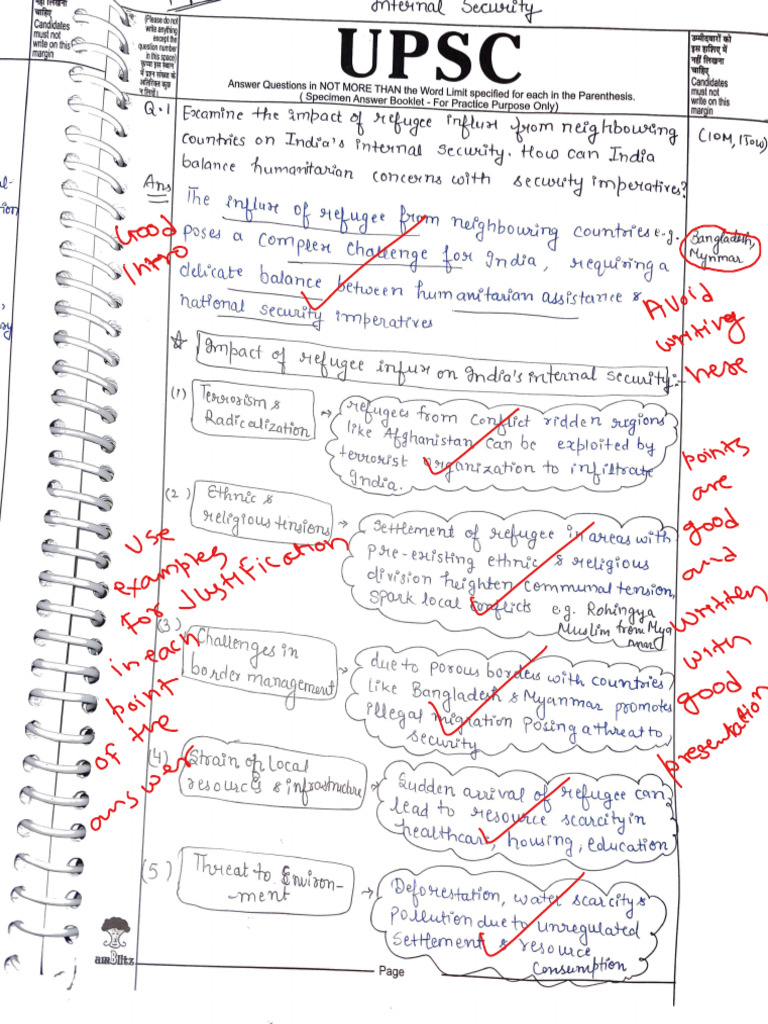 Internal Security
नहीं लिखना
चाहिए
Candidates
must not
write on this
margin
(Please do not
write anything
except the
question number
in this space)
UPSC
Answer Questions in NOT MORE THAN the Word Limit specified for each in the Parenthesis.
( Specimen Answer Booklet - For Practice Purpose Only)
उम्मीदवारों को
इस हाशिए में
नहीं लिखना
चाहिए
Candidates
must not
write on this
margin
Q.1 Examine the impact of refugee influx from neighbouring
countries on India's internal security. How can India
balance humanitarian concerns with security imperatives?
(10M, 150W)
Ans
The influx of refugee from neighbouring countries e.g.
Bangladesh,
Mynmar
poses a complex challenge for India, requiring a
delicate balance between humanitarian assistance &
national security imperatives
Good
Intro
Avoid
writing
here
☆ Impact of refugee infux on India's internal security:-
(1) Terrorism &
Radicalization
→ refugees from conflict ridden regions
like Afghanistan can be exploited by
terrorist organization to infiltrate
India.
(2) Ethnic &
religious tensions
→ settlement of refugee in areas with
pre-existing ethnic & religious
division heighten communal tension,
spark local conflicts e.g. Rohingya
Muslim from Mya
nmar
(3) Challenges in
border management
→ due to porous borders with countries
like Bangladesh & Myanmar promotes
illegal migration posing a threat to
security
(4) Strain of local
resources & infrastructure
→ Sudden arrival of refugee can
lead to resource scarcity in
healthcare, housing, education
(5) Threat to Environ-
-ment
→ Deforestation, water scarcity &
pollution due to unregulated
settlement & resource
consumption
Use
examples
for Justification
in each
point
of the
answer
points
are
good
and
written
with
good
presentation
am8litz
Page